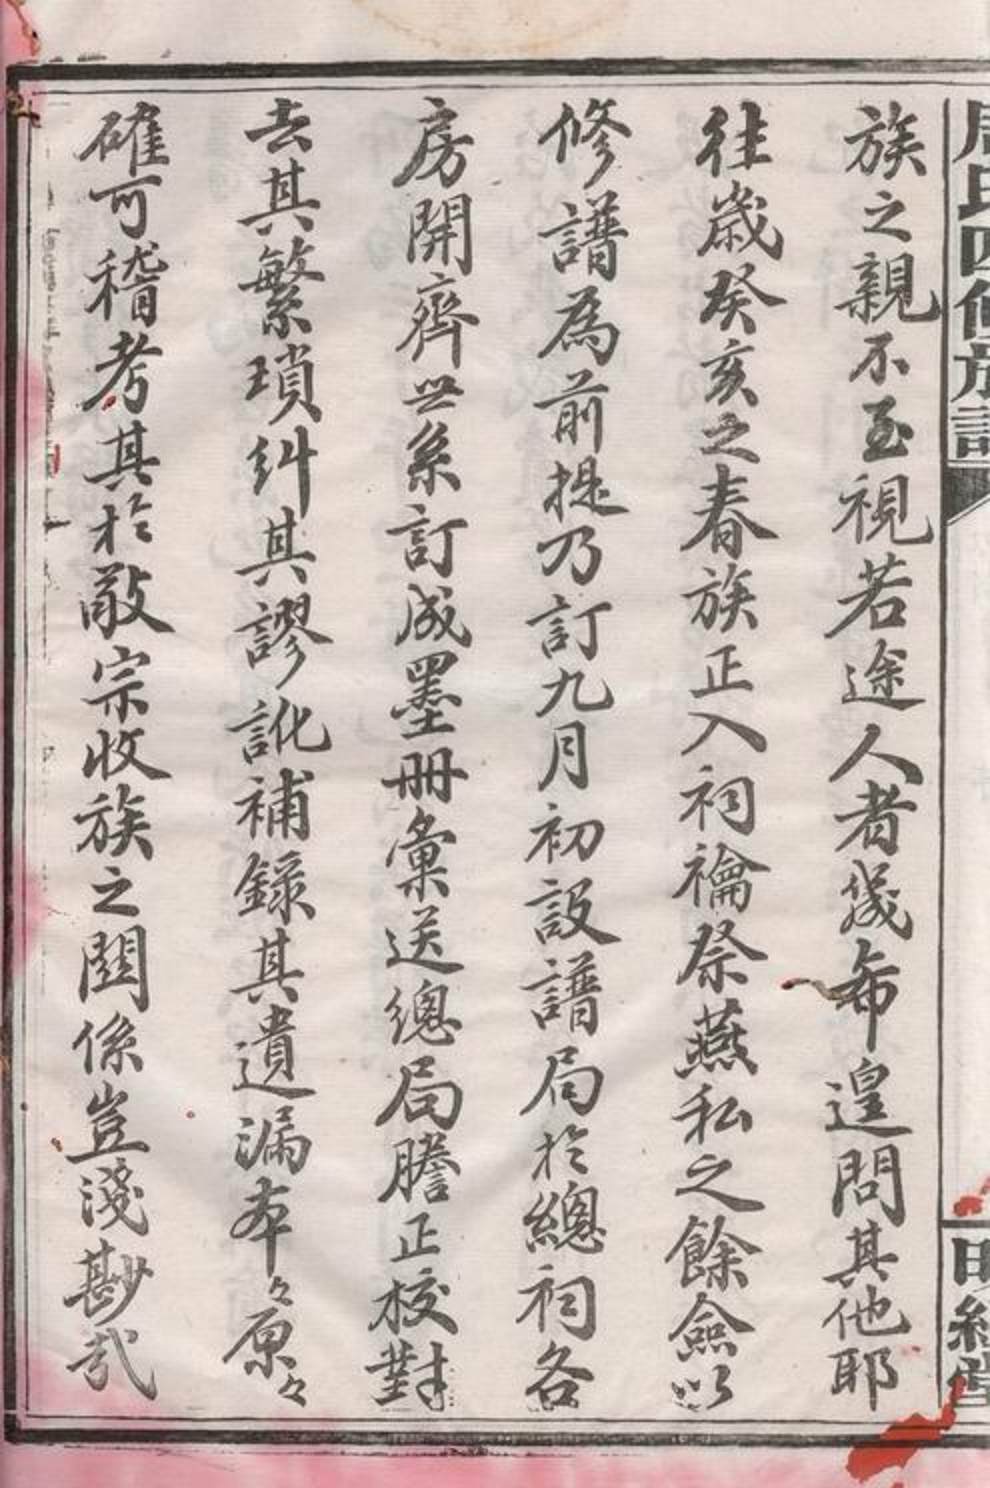 周氏四修族譜
明經堂
族之親不至視若途人者幾希遑問其他耶
往歲癸亥之春族正入祠禴祭燕私之餘僉以
修譜為前提乃訂九月初設譜局於總祠各
房開齊世系訂成墨冊彙送總局謄正校對
去其繁瑣糾其謬訛補錄其遺漏本々原々
確可稽考其於敬宗收族之關係豈淺尠哉